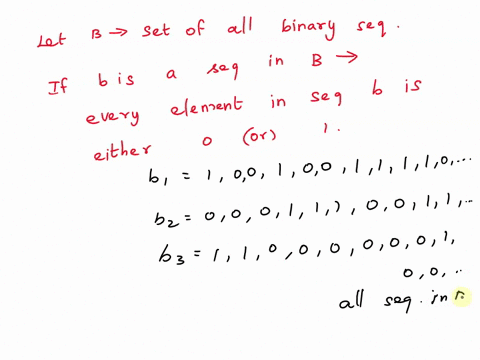 Let B → set of all binary seq.
If b is a seq in B →
every element in seq b is
either 0 (or) 1.
b₁ = 1, 0,0, 1, 0,0, 1, 1, 1, 1, 0, ...
b₂ = 0, 0, 0, 1, 1, 1, 0, 0, 1, 1, ...
b₃ = 1, 1, 0, 0, 0, 0, 0, 0, 1,
0, 0, ..
all seq. in